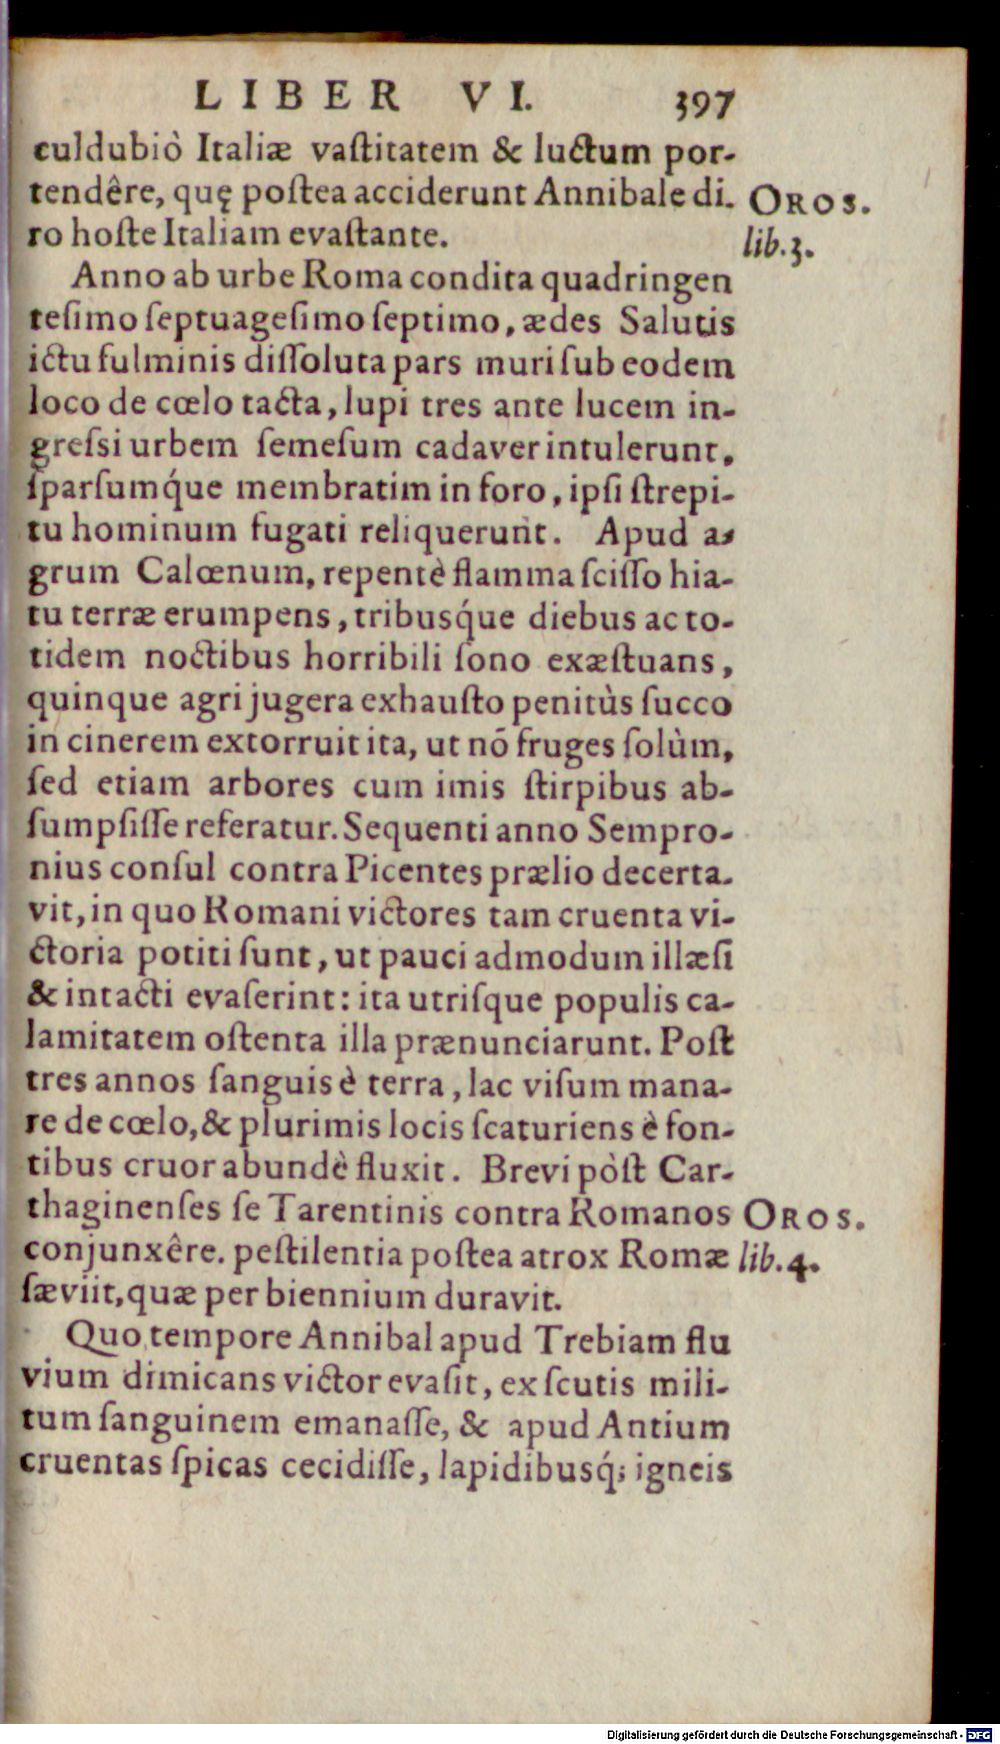 LIBER VI. 397
culdubiò Italiæ vaſtitatem & luctum por-
tendêre, quę poſtea acciderunt Annibale di-
ro hoſte Italiam evaſtante.
OROS.
lib. 3.
Anno ab urbe Roma condita quadringen
teſimo ſeptuageſimo ſeptimo, ædes Salutis
ictu fulminis diſſoluta pars muri ſub eodem
loco de cœlo tacta, lupi tres ante lucem in-
greſsi urbem ſemeſum cadaver intulerunt,
ſparſumq́ue membratim in foro, ipſi ſtrepi-
tu hominum fugati reliquerunt. Apud a-
grum Calœnum, repentè flamma ſciſſo hia-
tu terræ erumpens, tribusq́ue diebus ac to-
tidem noctibus horribili ſono exæſtuans,
quinque agri jugera exhauſto penitùs ſucco
in cinerem extorruit ita, ut nō fruges ſolùm,
ſed etiam arbores cum imis ſtirpibus ab-
ſumpſiſſe referatur. Sequenti anno Sempro-
nius conſul contra Picentes prælio decerta-
vit, in quo Romani victores tam cruenta vi-
ctoria potiti ſunt, ut pauci admodum illæſi
& intacti evaſerint: ita utriſque populis ca-
lamitatem oſtenta illa prænunciarunt. Poſt
tres annos ſanguis è terra, lac viſum mana-
re de cœlo, & plurimis locis ſcaturiens è fon-
tibus cruor abundè fluxit. Brevi pòſt Car-
thaginenſes ſe Tarentinis contra Romanos
conjunxêre. peſtilentia poſtea atrox Romæ
ſæviit, quæ per biennium duravit.
OROS.
lib. 4.
Quo tempore Annibal apud Trebiam flu
vium dimicans victor evaſit, ex ſcutis mili-
tum ſanguinem emanaſſe, & apud Antium
cruentas ſpicas cecidiſſe, lapidibusq́; igneis
Digitalisierung gefördert durch die Deutsche Forschungsgemeinschaft - DFG